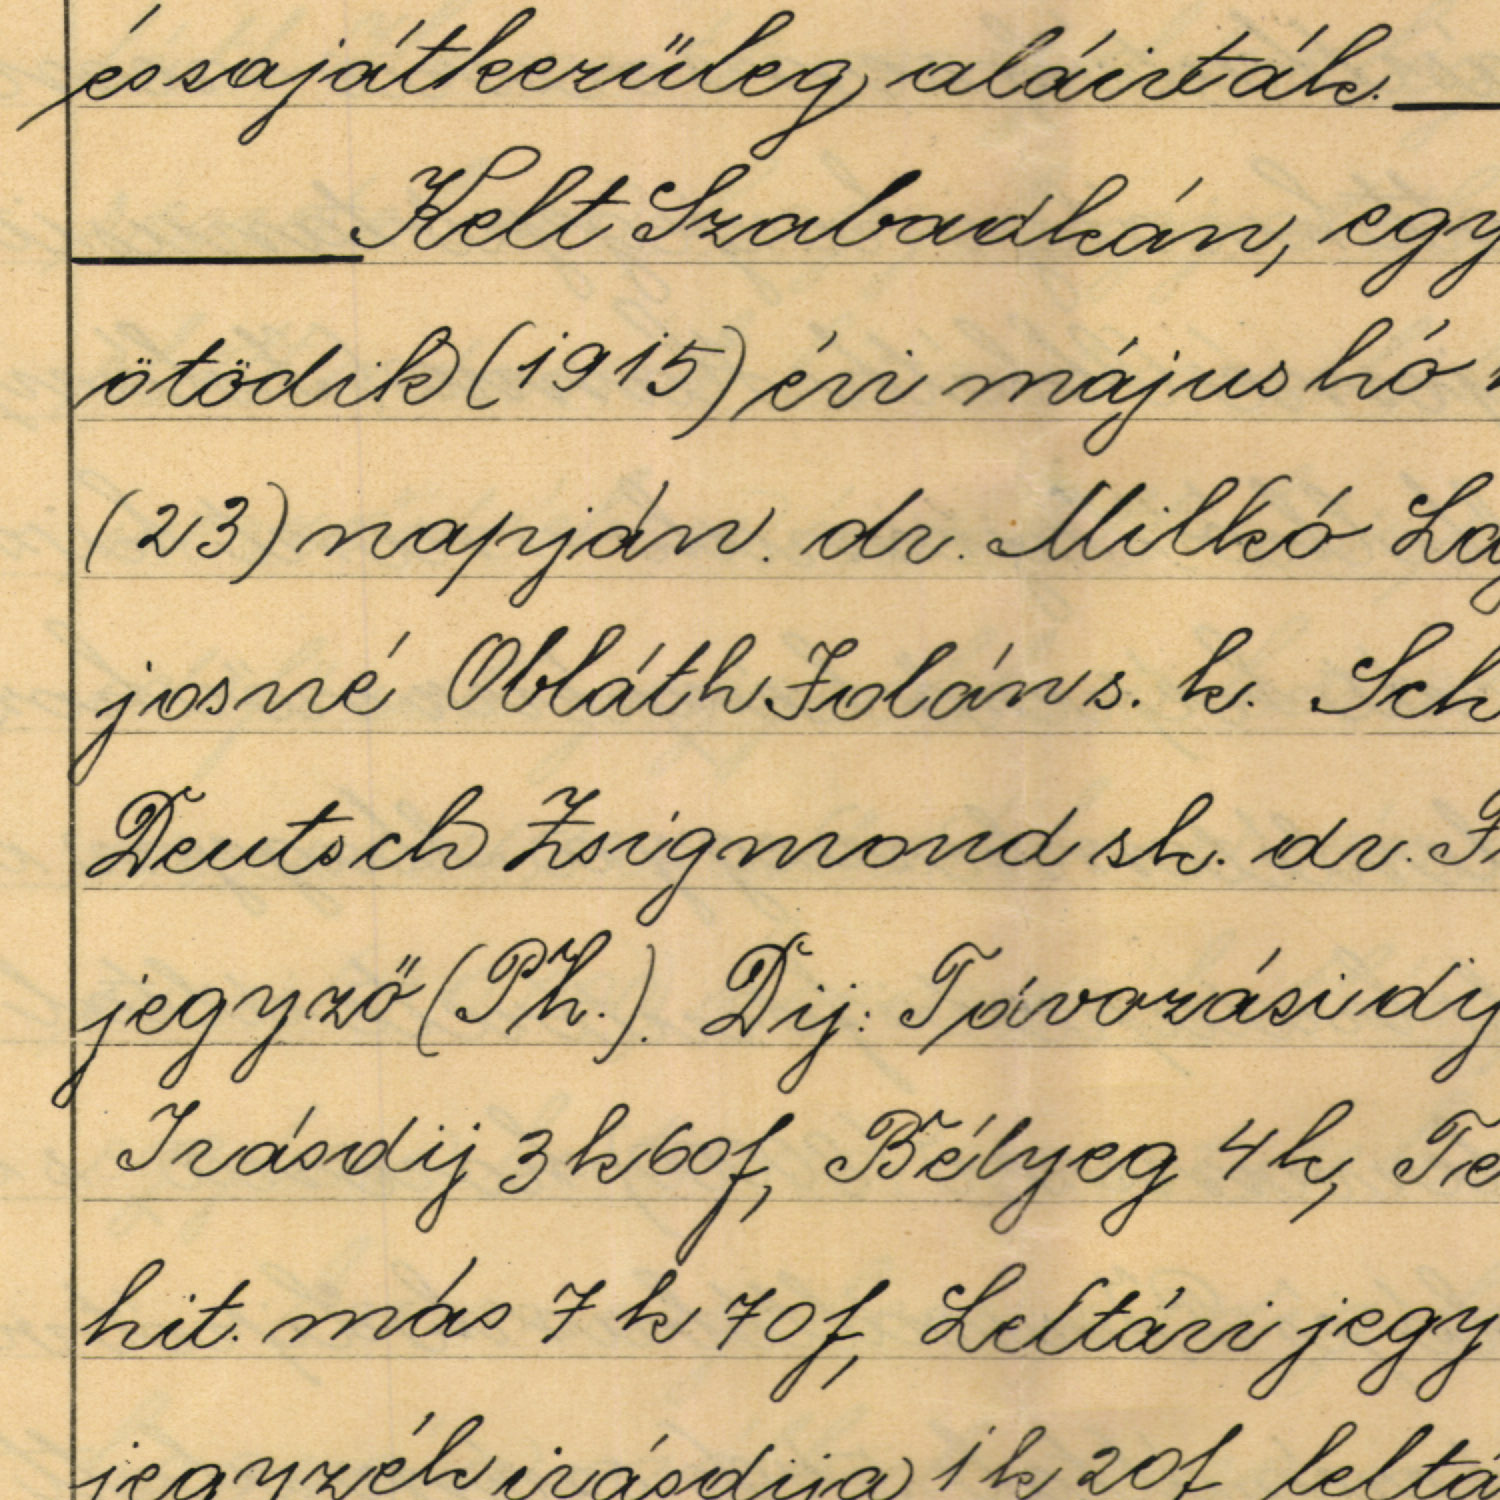 és sajátkezüleg aláirták.
Kelt Szabadkán, egy
ötödik (1915) évi május hó
(23) napján. dr. Milkó La
josné Obláth Jolán s. k. Sch
Deutsch Zsigmond sk. dr.
jegyző (Ph.). Dij: Távozási dij
Irásdij 3 k 60 f, Bélyeg 4 k, Te
hit. más 7 k 70 f, Leltári jegy
jegyzék irásdija 1 k 20 f leltá